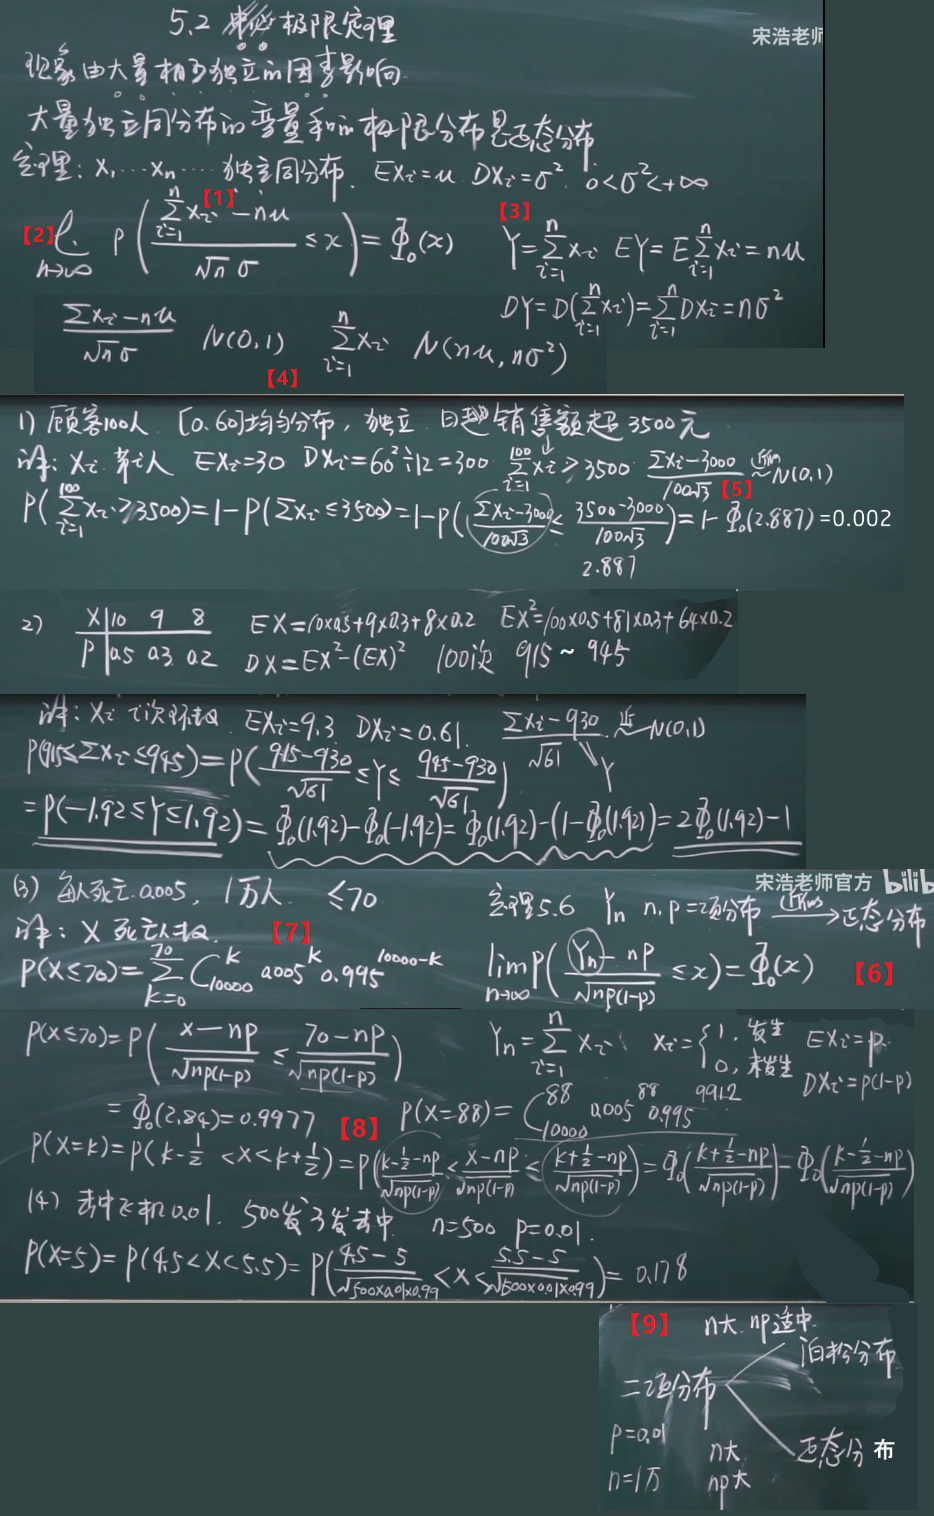 5.2 中心极限定理
宋浩老师
现象由大量相互独立的因素影响
大量独立同分布的变量和的极限分布是正态分布
定理: X₁…Xₙ…独立同分布. EXᵢ=μ DXᵢ=σ². 0<σ²<+∞
【1】
【2】 lim n→∞ P( (∑ᵢ₌₁ⁿ Xᵢ - nμ)/(√n σ) ≤ x ) = Φ₀(x)
【3】
Y=∑ᵢ₌₁ⁿ Xᵢ EY=E∑ᵢ₌₁ⁿ Xᵢ=nμ
DY=D(∑ᵢ₌₁ⁿ Xᵢ)=∑ᵢ₌₁ⁿ DXᵢ=nσ²
(∑Xᵢ-nμ)/(√n σ) N(0,1) ∑ᵢ₌₁ⁿ Xᵢ N(nμ,nσ²)
【4】
1) 顾客100人. [0.60]均匀分布, 独立. 日 销售额超3500元
详: Xᵢ 第i人 EXᵢ=30 DXᵢ=60²÷12=300 ∑ᵢ₌₁¹⁰⁰ Xᵢ≥3500 (∑Xᵢ-3000)/(100√3) 近似~ N(0,1)
【5】
P(∑ᵢ₌₁¹⁰⁰ Xᵢ≥3500)=1-P(∑Xᵢ≤3500)=1-P((∑Xᵢ-3000)/(100√3) ≤ (3500-3000)/(100√3))=1-Φ₀(2.887)=0.002
2.887
2) X 10 9 8 EX=10×0.5+9×0.3+8×0.2 EX²=100×0.5+81×0.3+64×0.2
P 0.5 0.3 0.2 DX=EX²-(EX)² 100次 915 ~ 945
详: Xᵢ i次环数. EXᵢ=9.3 DXᵢ=0.61. (∑Xᵢ-930)/√61 近~ N(0,1)
Y
P(915≤∑Xᵢ≤945)=P((915-930)/√61 ≤Y≤ (945-930)/√61)
=P(-1.92≤Y≤1.92)=Φ₀(1.92)-Φ₀(-1.92)=Φ₀(1.92)-(1-Φ₀(1.92))=2Φ₀(1.92)-1
宋浩老师官方 bilib
(3) 每人死亡0.005, 1万人. ≤70
详: X 死亡人数. 【7】
P(X≤70)=∑ₖ₌₀⁷⁰ C₁₀₀₀₀ᵏ 0.005ᵏ 0.995¹⁰⁰⁰⁰⁻ᵏ
定理5.6 Yₙ n.p=二项分布 近似→ 正态分布
lim n→∞ P( (Yₙ-np)/√(np(1-p)) ≤x)=Φ₀(x) 【6】
P(X≤70)=P( (x-np)/√(np(1-p)) ≤ (70-np)/√(np(1-p)) )
Yₙ=∑ᵢ₌₁ⁿ Xᵢ Xᵢ={1. 发生 0, 未发生 EXᵢ=p. DXᵢ=p(1-p)
=Φ₀(2.84)=0.9977 【8】 P(X=88)=C₁₀₀₀₀⁸⁸ 0.005⁸⁸ 0.995⁹⁹¹²
P(X=k)=P(k-1/2 <X<k+1/2)=P( (k-1/2-np)/√(np(1-p)) < (X-np)/√(np(1-p)) ≤ (k+1/2-np)/√(np(1-p)) )=Φ₀((k+1/2-np)/√(np(1-p)))-Φ₀((k-1/2-np)/√(np(1-p)))
(4) 击中飞机0.01. 500发 5发击中. n=500 p=0.01.
P(X=5)=P(4.5<X<5.5)=P( (4.5-5)/√(500×0.01×0.99) <X< (5.5-5)/√(500×0.01×0.99) )=0.178
【9】 n大. np适中.
泊松分布
二项分布
p=0.01 n大 正态分布
n=1万 np大